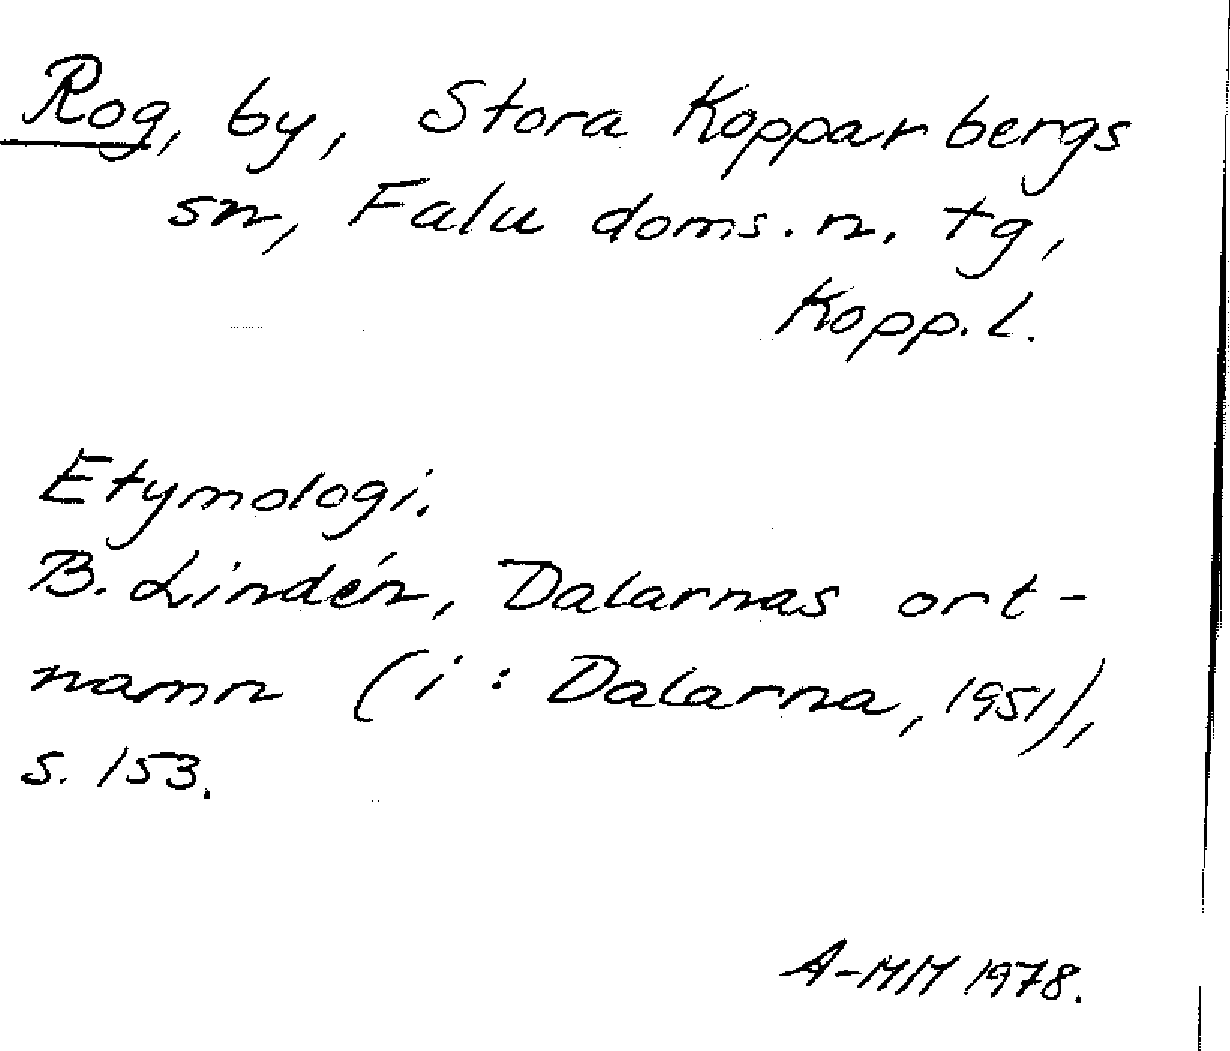 Rog, by, Stora Kopparbergs
sn, Falu doms.n. tg,
Kopp.l.
Etymologi.
B. Lindén, Dalarnas ort-
namn (i: Dalarna, 1951),
s. 153.
A-MM 1978.